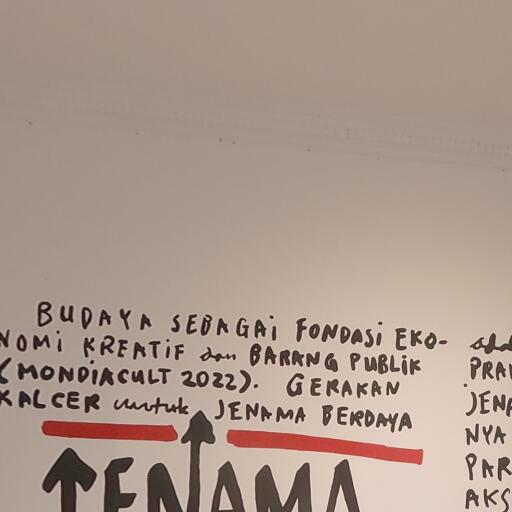 BUDAYA SEBAGAi FONDASi EKO-
NOMi KREATiF dan BARANG PUBLiK
(MONDiACULT 2022). GERAKAN
KALCER untuk JENAMA BERDAYA
JENAMA
PRA
JENA
NYA
PAR
AKS